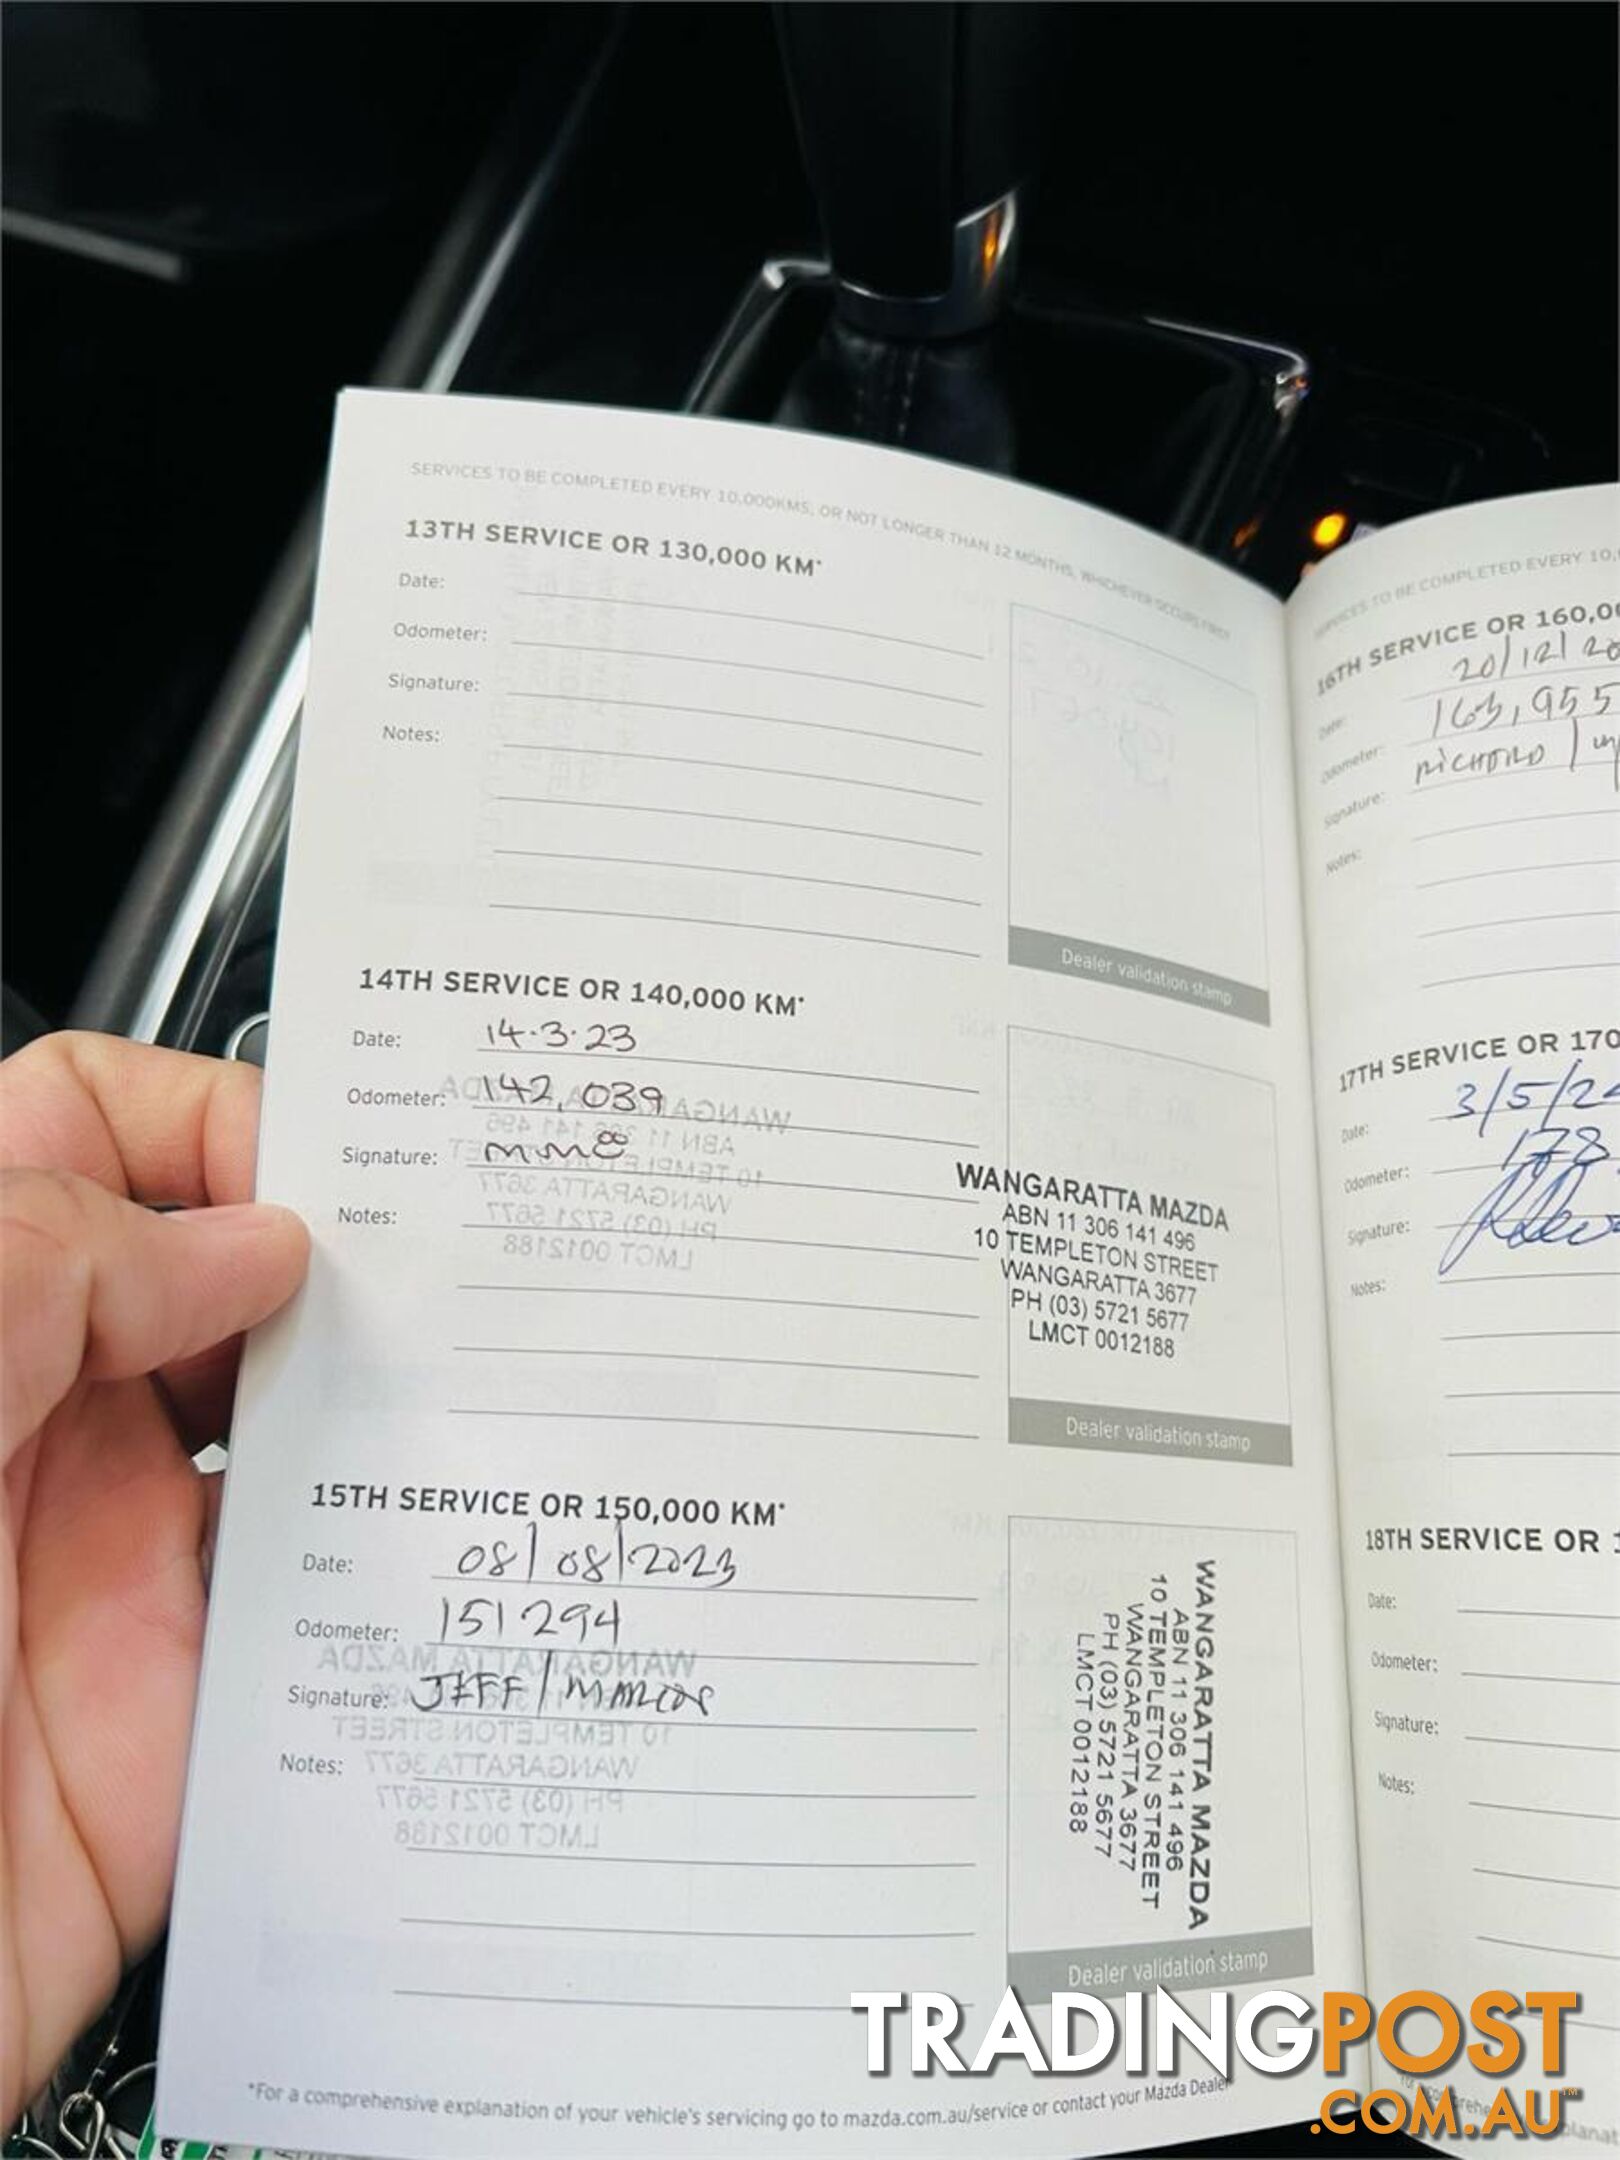 SERVICES TO BE COMPLETED EVERY 10,000KMS, OR NOT LONGER THAN 12 MONTHS, WHICHEVER OCCURS FIRST
13TH SERVICE OR 130,000 KM*
Date:
Odometer:
Signature:
Notes:
Dealer validation stamp
14TH SERVICE OR 140,000 KM*
Date: 14.3.23
Odometer: 142,039
Signature:
Notes:
WANGARATTA MAZDA
ABN 11 306 141 496
10 TEMPLETON STREET
WANGARATTA 3677
PH (03) 5721 5677
LMCT 0012188
Dealer validation stamp
15TH SERVICE OR 150,000 KM*
Date: 08/08/2023
Odometer: 151294
Signature: JEFF /
Notes:
WANGARATTA MAZDA
ABN 11 306 141 496
10 TEMPLETON STREET
WANGARATTA 3677
PH (03) 5721 5677
LMCT 0012188
Dealer validation stamp
*For a comprehensive explanation of your vehicle's servicing go to mazda.com.au/service or contact your Mazda Dealer
SERVICES TO BE COMPLETED EVERY 10,
16TH SERVICE OR 160,00
Date: 20/12/20
Odometer: 163,955
Signature: RICHARD /
Notes:
17TH SERVICE OR 170
Date: 3/5/24
Odometer: 178
Signature:
Notes:
18TH SERVICE OR 1
Date:
Odometer:
Signature:
Notes:
TRADINGPOST
.COM.AU™